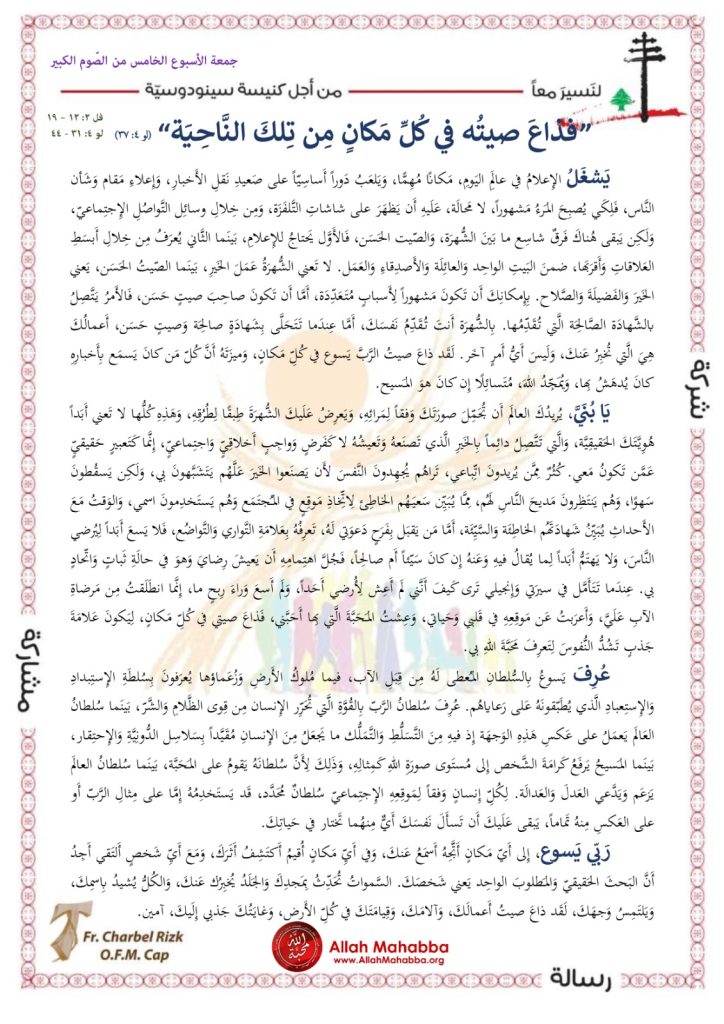 جمعة الأسبوع الخامس من الصّوم الكبير
لنَسيرَ معاً
من أجل كنيسة سينودوسيّة
فل ٢: ١٢ - ١٩
لو ٤: ٣١ - ٤٤
"فذَاعَ صيتُه في كُلِّ مَكانٍ مِن تِلكَ النَّاحِيَة" (لو ٤: ٣٧)
يَشغَلُ الإعلامُ في عالَمِ اليَومِ، مَكانًا مُهِمًّا، وَيَلعَبُ دَوراً أساسِيّاً على صَعيدِ نَقلِ الأخبارِ، وَإعلاءِ مَقام وَشَأن
النَّاس، فَلِكَي يُصبِحَ المَرءُ مَشهوراً، لا محالَة، عَلَيهِ أن يَظهَرَ على شاشاتِ التَّلفَزَة، وَمِن خِلالِ وسائِل التَّواصُلِ الإجتماعي،
وَلَكِن يَبقى هُناكَ فَرقٌ شاسِع ما بَينَ الشُّهرَة، وَالصّيت الحَسَن، فَالأوَّل يَحتاجُ للإعلام، بَينَما الثَّاني يُعرَفُ مِن خِلالِ أبسَطِ
العَلاقاتِ وَأقرَبَها، ضمنَ البَيتِ الواحِد والعائِلَة وَالأصدِقاءِ وَالعَمَل. لا تَعني الشُّهرَةُ عَمَلَ الخَيرِ، بَينَما الصّيتُ الحَسَن، يَعني
الخَيرَ وَالفَضيلَةَ وَالصَّلاح. بِإمكانِكَ أن تَكونَ مَشهوراً لِأسبابٍ مُتَعَدِّدَة، أمَّا أن تَكونَ صاحِبَ صيتٍ حَسَن، فَالأمرُ يَتَّصِلُ
بالشَّهادَة الصَّالِحَة الَّتي تُقَدِّمُها. بِالشُّهرَة أنتَ تُقَدِّمُ نَفسَكَ، أمَّا عِندَما تَتَحَلَّى بِشَهادَةٍ صالِحَة وَصيتٍ حَسَن، أعمالُكَ
هِيَ الَّتي تُخبِرُ عَنكَ، وَليسَ أيُّ أمرٍ آخَر. لَقَد ذاعَ صيتُ الرَّبّ يَسوع في كُلِّ مَكانٍ، وَميزَتَهُ أنَّ كُلّ مَن كانَ يَسمَع بِأخبارِهِ
كانَ يُدهَشُ بِها، وَيُمَجِّدُ اللهَ، مُتَسائِلًا إن كانَ هوَ المَسيح.
يَا بُنَيَّ، يُريدُكَ العالَم أن تُجَمِّلَ صورَتَكَ وَفقاً لِمَرائِهِ، وَيَعرِضُ عَلَيكَ الشُّهرَةَ طِبقًا لِطُرُقِهِ، وَهَذِهِ كُلُّها لا تَعني أبَداً
هُوِيَّتَكَ الحَقيقِيَّة، وَالَّتي تَتَّصِلُ دائِماً بِالخَيرِ الَّذي تَصنَعَهُ وَتَعيشُهُ لا كَفَرضٍ وَواجِبٍ أخلاقِيٍّ وَاجتماعِيٍّ، إنَّما كَتَعبيرٍ حَقيقيٍّ
عَمَّن تَكونُ مَعي. كُثُرٌ مِمَّن يُريدونَ اتِّباعي، تَراهُم يُجهِدونَ النَّفسَ لأن يَصنَعوا الخَيرَ عَلَّهُم يَتَشَبَّهونَ بي، وَلَكِن يَسقُطونَ
سَهوًا، وَهُم يَنتَظِرونَ مَديحَ النَّاسِ لَهُم، مِمَّا يُبَيِّن سَعيَهُم الخاطِئ لِاتِّخاذِ مَوقِعٍ في المُجتَمَع وَهُم يَستَخدِمونَ اسمي، وَالوَقتُ مَعَ
الأحداثِ يُبَيِّنُ شَهادَتَهُم الخاطِئَة وَالسَّيِّئَة، أمَّا مَن يَقبَل بِفَرَحٍ دَعوَتي لَهُ، تَعرِفُهُ بِعَلامَةِ التَّواري وَالتَّواضُع، فَلا يَسعَ أبَداً لِيُرضي
النَّاسَ، وَلا يَهتَمُّ أبَداً لِما يُقالُ فيهِ وَعَنهُ إن كانَ سَيِّئاً أم صالِحاً، فَجُلَّ اهتِمامِهِ أن يَعيشَ رِضايَ وَهوَ في حالَةِ ثَباتٍ وَاتِّحادٍ
بي. عِندَما تَتَأمَّل في سيرَتي وَإنجيلي تَرى كَيفَ أنَّني لَم أعِش لِأُرضي أحَداً، وَلَم أسعَ وَراءَ رِبحٍ ما، إنَّما انطَلَقتُ مِن مَرضاةِ
الآبِ عَلَيَّ، وَأعرَبتُ عَن مَوقِعِهِ في قَلبي وَحَياتي، وَعِشتُ المَحَبَّةَ الَّتي بِها أحَبَّني، فَذاعَ صيتي في كُلِّ مَكانٍ، لِيَكونَ عَلامَةَ
جَذبٍ تَشُدُّ النُّفوسَ لِتَعرِفَ مَحَبَّةَ اللهِ بي.
عُرِفَ يَسوعُ بِالسُّلطانِ المُعطى لَهُ مِن قِبَلِ الآب، فيما مُلوكُ الأرضِ وَزُعَماؤها يُعرَفونَ بِسُلطَةِ الإستِبدادِ
وَالإستِعبادِ الَّذي يُطَبِّقونَهُ عَلى رَعاياهُم. عُرِفَ سُلطانُ الرَّبّ بِالقُوَّةِ الَّتي تُحَرِّر الإنسان مِن قِوى الظَّلامِ وَالشَّرّ، بَينَما سُلطانُ
العَالَمِ يَعمَلُ على عَكسِ هَذِهِ الوَجهَة إذ فيهِ مِنَ التَّسَلُّطِ وَالتَّمَلُّك ما يَجعَلُ مِنَ الإنسانِ مُقَيَّداً بِسَلاسِلِ الدُّونِيَّةِ وَالإحتِقارِ،
بَينَما المَسيحُ يَرفَعُ كَرامَةَ الشَّخصِ إلى مُستَوى صورَةِ اللهِ كَمِثالِهِ، وَذَلِكَ لِأنَّ سُلطانَهُ يَقومُ على المَحَبَّة، بَينَما سُلطانُ العالَم
يَزعَم وَيَدَّعي العَدلَ وَالعَدالَة. لِكُلِّ إنسانٍ وَفقاً لِمَوقِعِهِ الإجتماعيّ سُلطانٌ مُحَدَّد، قَد يَستَخدِمُهُ إمَّا على مِثالِ الرَّبّ أو
على العَكسِ مِنهُ تَماماً، يَبقى عَلَيكَ أن تَسألَ نَفسَكَ أيٌّ مِنهُما تَختار في حَياتِكَ.
رَبّي يَسوع، إلى أيّ مَكانٍ أتَّجِهُ أسمَعُ عَنكَ، وَفي أيّ مَكانٍ أُقيمُ أكتَشِفُ أثَرَكَ، وَمَعَ أيّ شَخصٍ ألتَقي أجِدُ
أنَّ البَحثَ الحَقيقيّ وَالمَطلوبَ الواحِد يَعني شَخصَكَ. السَّمواتُ تُحَدِّثُ بِمَجدِكَ وَالجَلَدُ يُخبِرُكَ عَنكَ، وَالكُلُّ يُشيدُ بِاسمِكَ،
وَيَلتَمِسُ وَجهَكَ، لَقَد ذاعَ صيتُ أعمالَكَ، وَآلامَكَ، وَقِيامَتَكَ في كُلِّ الأرض، وَغايَتُكَ جَذبي إلَيكَ، آمين.
شركة
مشاركة
رسالة
Fr. Charbel Rizk
O.F.M. Cap
الله محبّة
Allah Mahabba
www.AllahMahabba.org